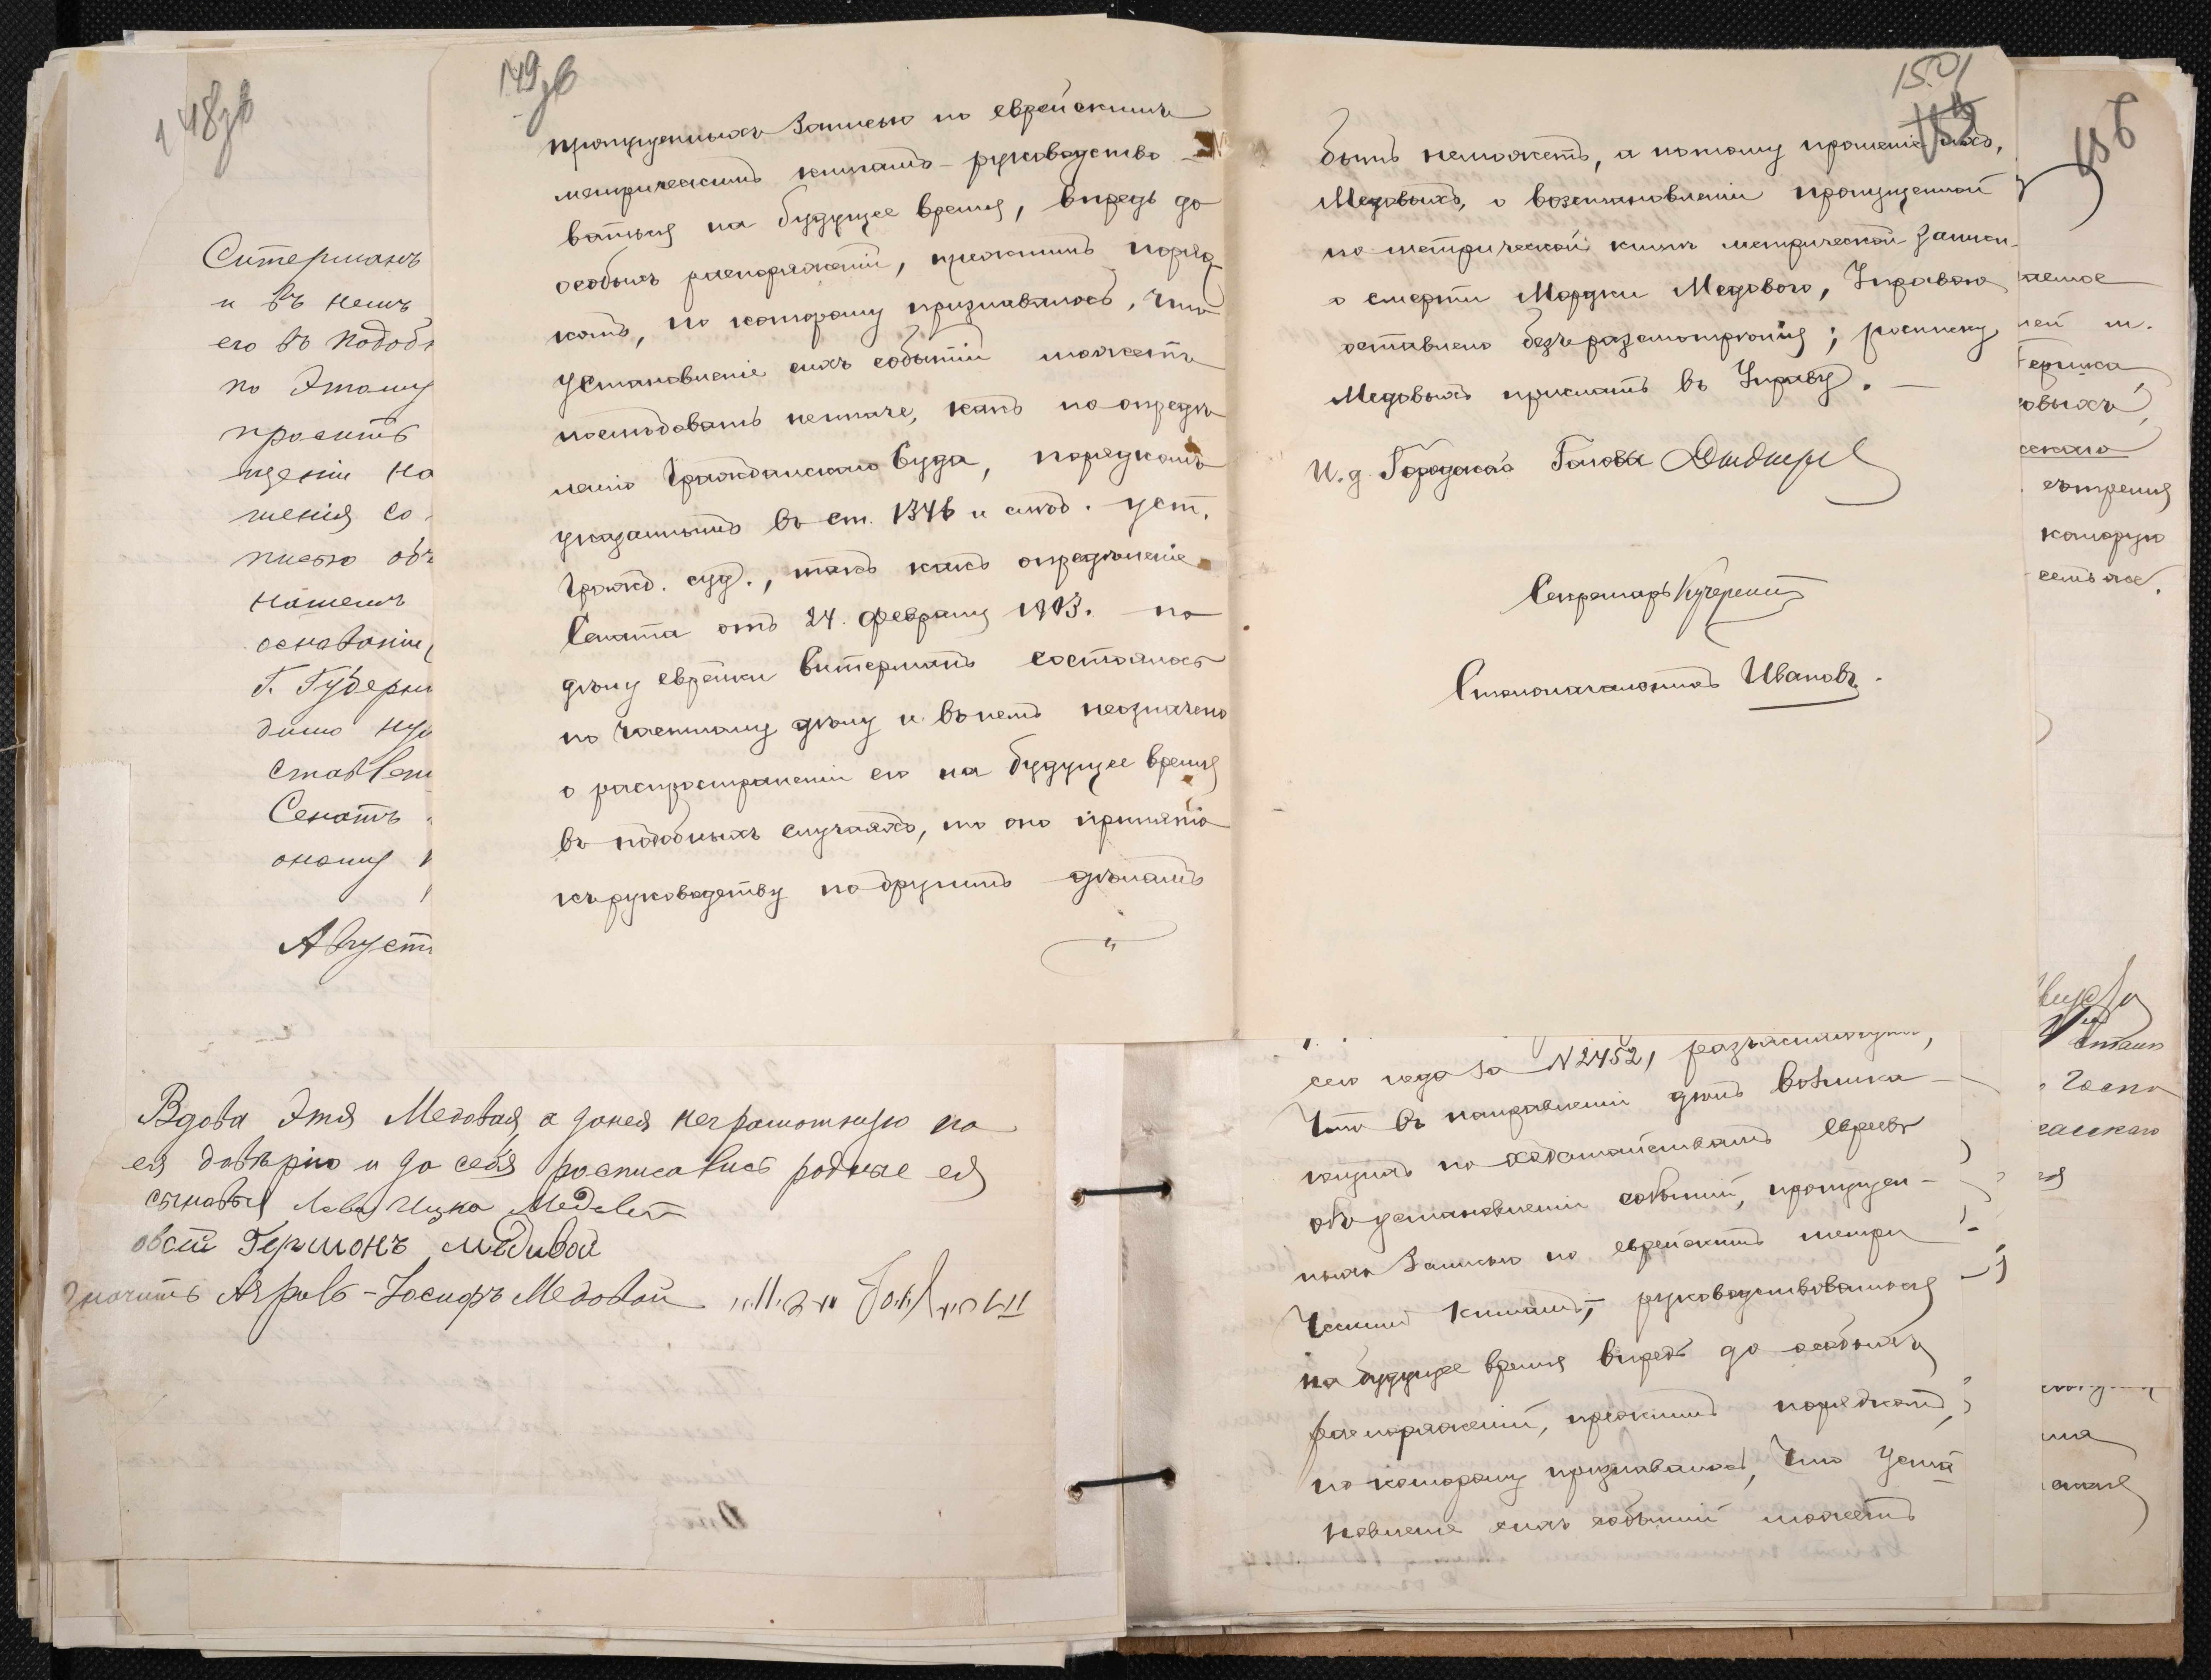 148зв
Ситерманъ
и въ немъ
его въ подоб
по этому
просить
щеніи на
шенія со
писью объ
нашемъ
основаніи
Г. Губерн
димо
ставлен
Сенатъ
оному
Август
149зв
пропущенныхъ записью по еврейскимъ
метрическимъ книгамъ – руководство-
ваться на будущее время, впредь до
особыхъ распоряженій, прежнимъ поряд
комъ, по которому признавалось, что
установленіе сихъ событій можетъ
послѣдовать неиначе, какъ по опредѣ
ленію Гражданскаго Суда, порядкомъ
указаннымъ въ ст. 1346 и слѣд. уст.
Гражд. суд., такъ какъ опредѣленіе
Сената отъ 24 февраля 1903. по
дѣлу еврейки Ситерманъ состоялось
по частному дѣлу и въ немъ неозначено
о распространеніи его на будущее время
въ подобныхъ случаяхъ, то оно принято
къ руководству по другимъ дѣламъ
150
быть неможетъ, а потому прошеніе
Медовыхъ, о возстановленіи пропущенной
по метрической книгѣ метрической записи
о смерти Мордки Медового, Управою
оставлено безъ разсмотрѣнія; росписку
Медовыхъ прислать въ Управу. —
И. д. Городского Головы
Секретарь
Столоначальникъ Ивановъ.
156
аемое
лей
Гершка
овыхъ,
скаго
отренія
которую
семъ же.
Вдова Этя Медовая, а занея неграмотную по
ея довѣрію и за себя росписались родные ея
сыновья Лева Ицка Медовой
Гершонъ Медовой
Азріель-Іосифъ Медовой
сего года за N 2452, разъяснилъ,
Что въ направленіи дѣлъ возника-
ющихъ по ходатайствамъ евреевъ
объ установленіи событій, пропущен-
ныхъ записью по еврейскимъ метри
ческимъ книгамъ, руководствоваться
на будущее время впредь до особыхъ
распоряженій, прежнимъ порядкомъ,
по которому признавалось, Что уста
новленіе сихъ событій можетъ